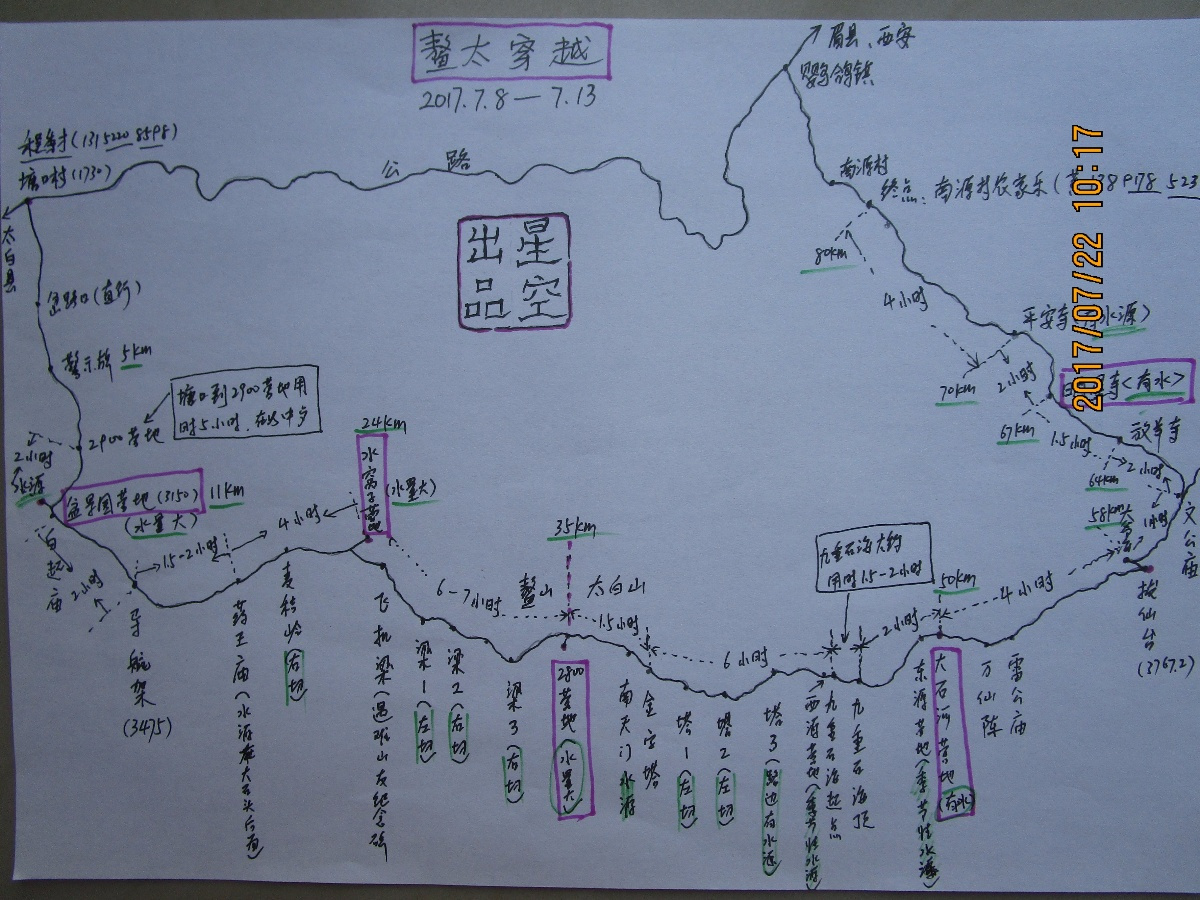 鳌太穿越
2017.7.8—7.13
眉县、西安
鹦鸽镇
塘口村(1730)
太白县
公路
南源村
终点、南源村农家乐
80km
4小时
70km
平安寺
水源〉
2小时
67km
<有水>
1.5小时
放羊寺
64km
2小时
58km
1小时
文公庙
拔仙台
(3767.2)
出星
品空
岔路口(直行)
警示牌 5km
塘口到2900营地用
时5小时.
2900营地
2小时
水源
盆景园营地(3150) 11km
(水量大)
白起庙
2小时
1.5-2小时
4小时
24km
水窝子营地
(水量大)
导航架
(3475)
药王庙(水源在大石头后面)
麦秸岭(右切)
飞机梁(遇难山友纪念碑
6-7小时
梁1(左切)
梁2(右切)
梁3(右切)
35km
鳌山 太白山
2800营地(水量大)
1.5小时
南天门水源
金字塔
6小时
塔1(左切)
塔2(左切)
塔3(路边有水源)
九重石海大约
用时1.5-2小时
西源营地(季节性水源)
九重石海起点
九重石海顶
2小时
50km
东源营地(季节性水源)
大石河营地(有水)
4小时
万仙阵
雷公庙
2017/07/22 10:17